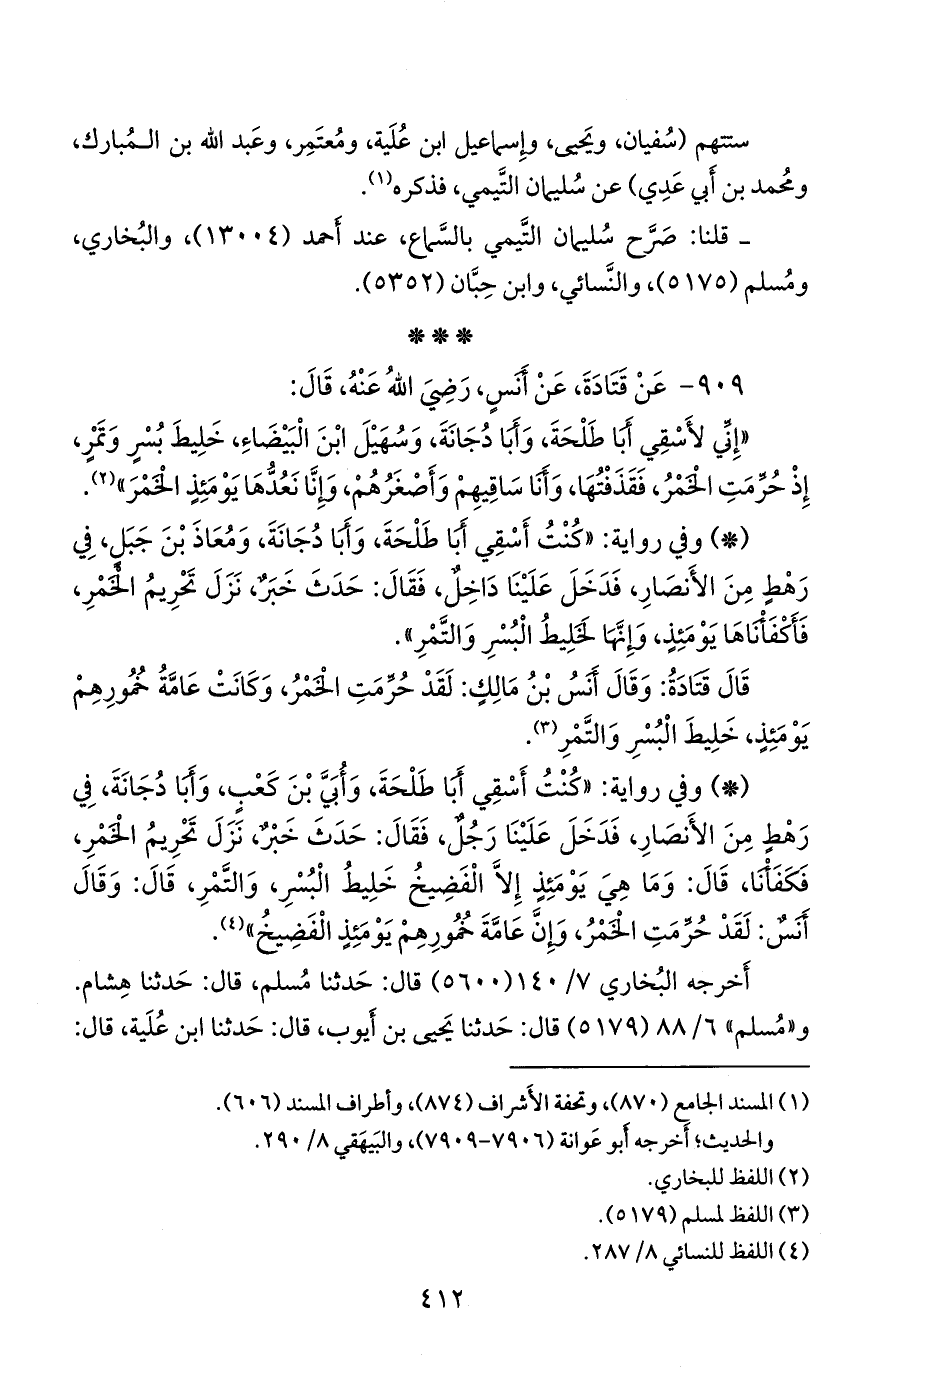 ستتهم (سُفيان، ويَحيى، وإِسماعيل ابن عُلَية، ومُعتَمِر، وعَبد الله بن الـمُبارك،
ومُحمد بن أَبي عَدِي) عن سُليمان التَّيمي، فذكره(١).
ـ قلنا: صَرَّح سُليمان التَّيمي بالسَّماع، عند أَحمد (١٣٠٠٤)، والبُخاري،
ومُسلم (٥١٧٥)، والنَّسائي، وابن حِبَّان (٥٣٥٢).
* * *
٩٠٩- عَنْ قَتَادَةَ، عَنْ أَنَسٍ، رَضِيَ اللهُ عَنْهُ، قَالَ:
«إِنِّي لأَسْقِي أَبَا طَلْحَةَ، وَأَبَا دُجَانَةَ، وَسُهَيْلَ ابْنَ الْبَيْضَاءِ، خَلِيطَ بُسْرٍ وَتَمْرٍ،
إِذْ حُرِّمَتِ الْخَمْرُ، فَقَذَفْتُهَا، وَأَنَا سَاقِيهِمْ وَأَصْغَرُهُمْ، وَإِنَّا نَعُدُّهَا يَوْمَئِذٍ الْخَمْرَ»(٢).
(*) وفي رواية: «كُنْتُ أَسْقِي أَبَا طَلْحَةَ، وَأَبَا دُجَانَةَ، وَمُعَاذَ بْنَ جَبَلٍ، فِي
رَهْطٍ مِنَ الأَنصَارِ، فَدَخَلَ عَلَيْنَا دَاخِلٌ، فَقَالَ: حَدَثَ خَبَرٌ، نَزَلَ تَحْرِيمُ الْخَمْرِ،
فَأَكْفَأْنَاهَا يَوْمَئِذٍ، وَإِنَّهَا لَخَلِيطُ الْبُسْرِ وَالتَّمْرِ».
قَالَ قَتَادَةُ: وَقَالَ أَنَسُ بْنُ مَالِكٍ: لَقَدْ حُرِّمَتِ الْخَمْرُ، وَكَانَتْ عَامَّةُ خُمُورِهِمْ
يَوْمَئِذٍ، خَلِيطَ الْبُسْرِ وَالتَّمْرِ(٣).
(*) وفي رواية: «كُنْتُ أَسْقِي أَبَا طَلْحَةَ، وَأُبَيَّ بْنَ كَعْبٍ، وَأَبَا دُجَانَةَ، فِي
رَهْطٍ مِنَ الأَنْصَارِ، فَدَخَلَ عَلَيْنَا رَجُلٌ، فَقَالَ: حَدَثَ خَبْرٌ، نَزَلَ تَحْرِيمُ الْخَمْرِ،
فَكَفَأْنَا، قَالَ: وَمَا هِيَ يَوْمَئِذٍ إِلاَّ الْفَضِيخُ خَلِيطُ الْبُسْرِ، وَالتَّمْرِ، قَالَ: وَقَالَ
أَنَسٌ: لَقَدْ حُرِّمَتِ الْخَمْرُ، وَإِنَّ عَامَّةَ خُمُورِهِمْ يَوْمَئِذٍ الْفَضِيخُ»(٤).
أَخرجه البُخاري ٧/ ١٤٠ (٥٦٠٠) قال: حَدثنا مُسلم، قال: حَدثنا هِشام.
و«مُسلم» ٦/ ٨٨ (٥١٧٩) قال: حَدثنا يَحيى بن أَيوب، قال: حَدثنا ابن عُلَية، قال:
(١) المسند الجامع (٨٧٠)، وتحفة الأَشراف (٨٧٤)، وأَطراف المسند (٦٠٦).
والحديث؛ أَخرجه أبو عَوانة (٧٩٠٦-٧٩٠٩)، والبَيهَقي ٨/ ٢٩٠.
(٢) اللفظ للبخاري.
(٣) اللفظ لمسلم (٥١٧٩).
(٤) اللفظ للنسائي ٨/ ٢٨٧.
٤١٢